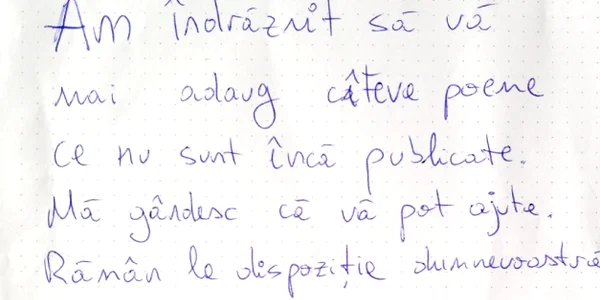 Am îndrăznit să vă
mai adaug câteva poeme
ce nu sunt încă publicate.
Mă gândesc că vă pot ajuta.
Rămân la dispoziție dumnevoastră